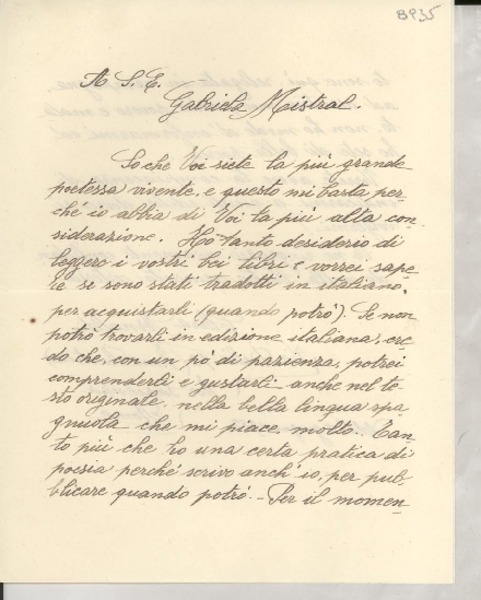 8935
A S. E.
Gabriela Mistral.
So che Voi siete la più grande
poetessa vivente, e questo mi basta per-
ché io abbia di Voi la più alta con-
siderazione. Ho tanto desiderio di
leggere i vostri bei libri e vorrei sape-
re se sono stati tradotti in italiano,
per acquistarli (quando potrò). Se non
potrò trovarli in edizione italiana, cre-
do che, con un pò di pazienza, potrei
comprenderli e gustarli anche nel te-
sto originale, nella bella lingua spa-
gnuola che mi piace molto. Tan-
to più che ho una certa pratica di
poesia perché scrivo anch'io, per pub-
blicare quando potrò. - Per il momen-